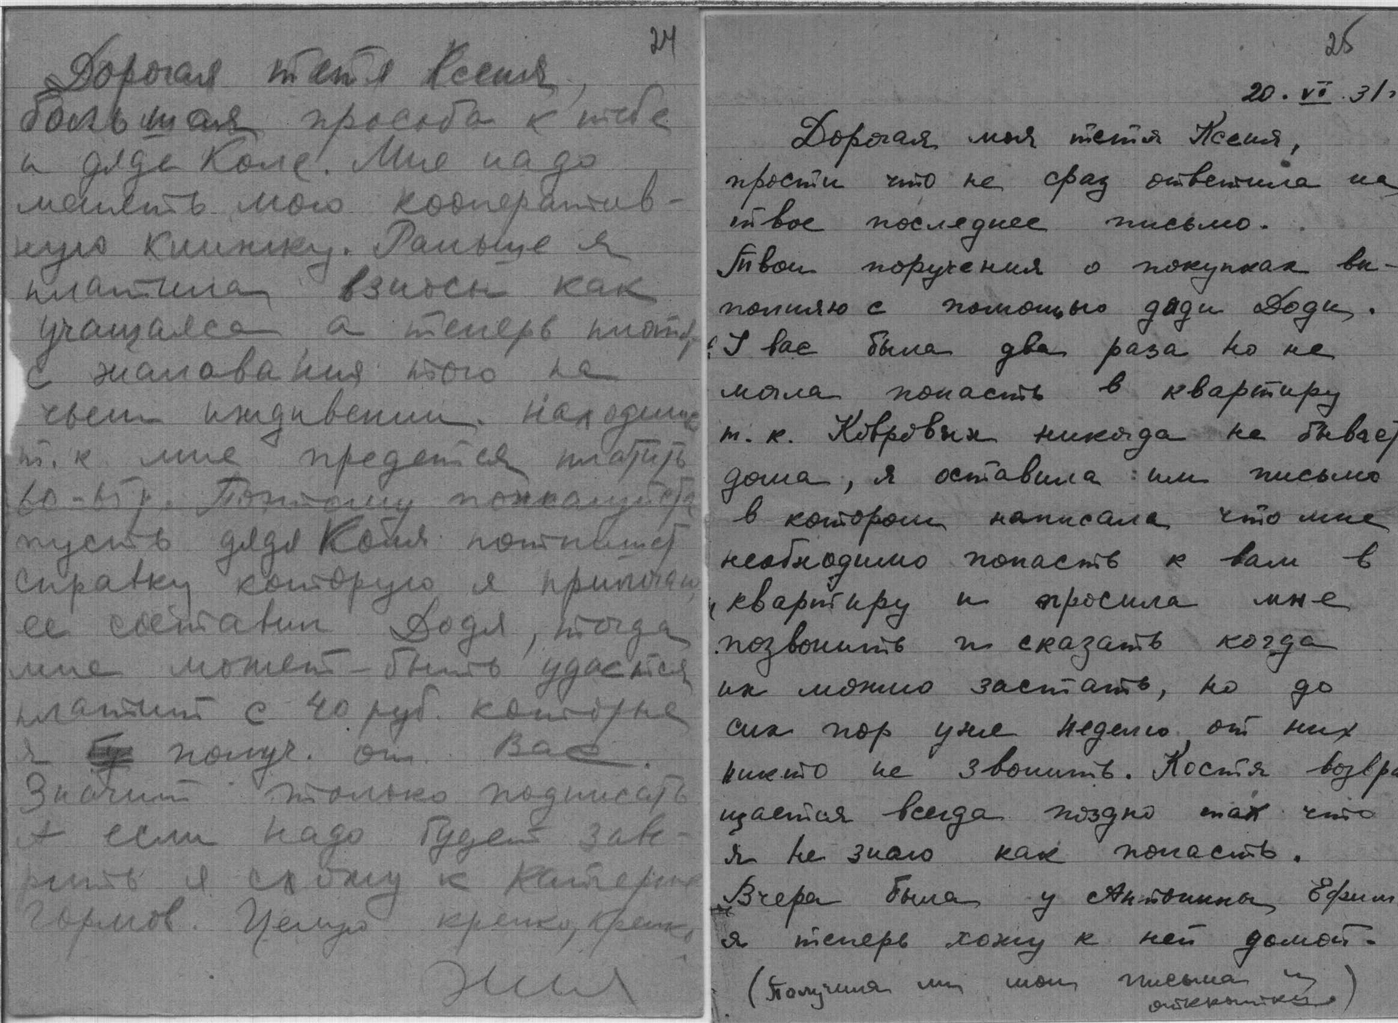 24
Дорогая тетя Ксеня,
большая просьба к тебе
и дяде Коле. Мне надо
менять мою кооператив-
ную книжку. Раньше я
платила взносы как
учащаяся а теперь платят
с жалованья того на
чьем иждивении находишься
т.к мне предется платить
60-65 р. Поэтому пожалуйста
пусть дядя Коля подпишет
справку которую я прилогаю,
ее составил Додя, тогда
мне может-быть удастся
платит с 40 руб. которые
я получ. от Вас.
Значит только подписать
А если надо будет заве-
рить я схожу к Катерине
Целую крепко, крепко
Женя
25
20. VI. 31 г
Дорогая моя тетя Ксеня,
прости что не сраз ответила на
твое последнее письмо.
Твои поручения о покупках вы-
полняю с помощью дяди Доди.
У вас была два раза но не
могла попасть в квартиру
т.к. Ковровых никогда не бывает
дома, я оставила им письмо
в котором написала что мне
необходимо попасть к вам в
квартиру и просила мне
позвонить и сказать когда
их можно застать, но до
сих пор уже неделю от них
никто не звонить. Костя возвра
щается всегда поздно так что
я не знаю как попасть.
Вчера была у Антонины Ефим
я теперь хожу к ней домой.
(Получила ли мои письма и
открытки)